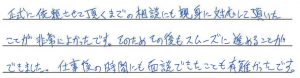 正式に依頼させて頂くまでの相談にも親身に対応して頂いた
ことが非常によかったです。そのためその後もスムーズに進めることが
できました。仕事後の時間にも面談できたことも有難かったです。